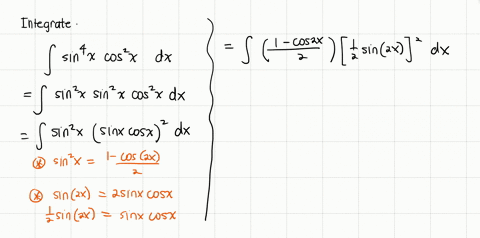 Integrate.
∫ sin⁴x cos²x dx
= ∫ sin²x sin²x cos²x dx
= ∫ sin²x (sinx cosx)² dx
⊛ sin²x = (1 - cos(2x))/2
⊛ sin(2x) = 2sinx cosx
½ sin(2x) = sinx cosx
= ∫ ((1 - cos2x)/2) [½ sin(2x)]² dx